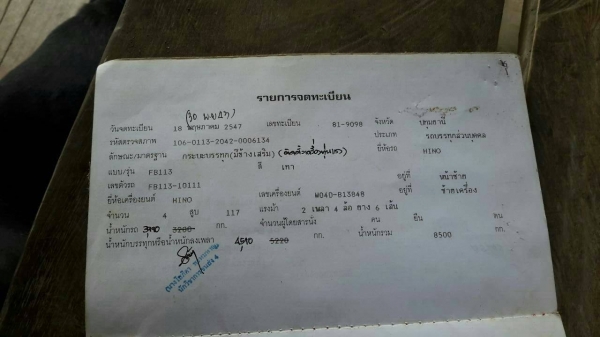 รายการจดทะเบียน
วันจดทะเบียน 18 พฤษภาคม 2547 เลขทะเบียน 81-9098 จังหวัด ปทุมธานี
รหัสตรวจสภาพ 106-0113-2042-0006134 ประเภท รถบรรทุกส่วนบุคคล
ลักษณะ/มาตรฐาน กระบะบรรทุก(มีข้างเสริม) ยี่ห้อรถ HINO
แบบ/รุ่น FB113 สี เทา
เลขตัวรถ FB113-10111 อยู่ที่ หน้าซ้าย
ยี่ห้อเครื่องยนต์ HINO เลขเครื่องยนต์ W04D-B13848 อยู่ที่ ซ้ายเครื่อง
จำนวน 4 สูบ 117 แรงม้า 2 เพลา 4 ล้อ ยาง 6 เส้น
น้ำหนักรถ 3280 กก. จำนวนผู้โดยสารนั่ง คน ยืน คน
น้ำหนักบรรทุกหรือน้ำหนักลงเพลา 5220 กก. น้ำหนักรวม 8500 กก.